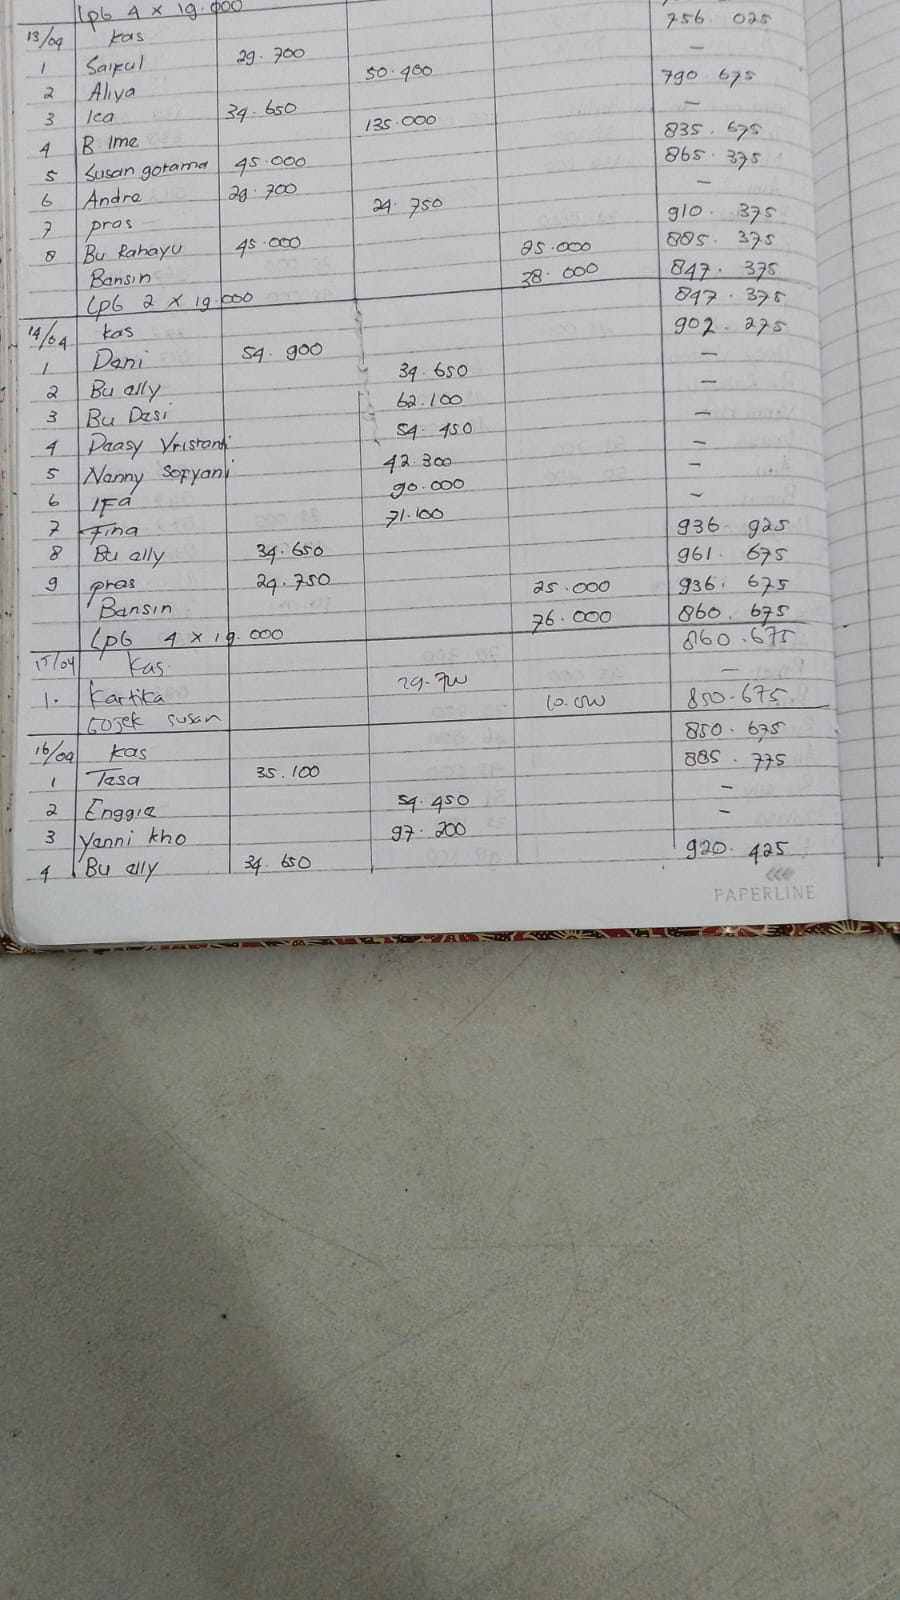 Lpb 4 x 19.000
13/04 kas 756.025
1 Saiful 29.700 —
2 Aliya 50.400 790.675
3 Ica 34.650 —
4 B Ime 135.000 835.675
5 Susan gotama 45.000 865.375
6 Andre 29.700 —
7 pras 24.750 910.375
8 Bu Rahayu 45.000 885.375
Bansin 25.000 847.375
Lpb 2 x 19.000 38.000 847.375
14/04 kas 902.275
1 Dani 54.900 —
2 Bu ally 34.650 —
3 Bu Desi 62.100 —
4 Daasy Vristanti 54.450 —
5 Nanny Sofyani 42.300 —
6 Ifa 90.000 —
7 Fina 71.100 936.925
8 Bu ally 34.650 961.675
9 pras 24.750 936.675
Bansin 25.000 860.675
Lpb 4 x 19.000 76.000 860.675
15/04 kas.
1. Kartika 29.700 —
Gojek susan 10.000 850.675
16/04 kas 850.675
1 Tasa 35.100 885.775
2 Enggie 54.450 —
3 Yanni kho 97.200 —
4 Bu ally 34.650 920.425
PAPERLINE